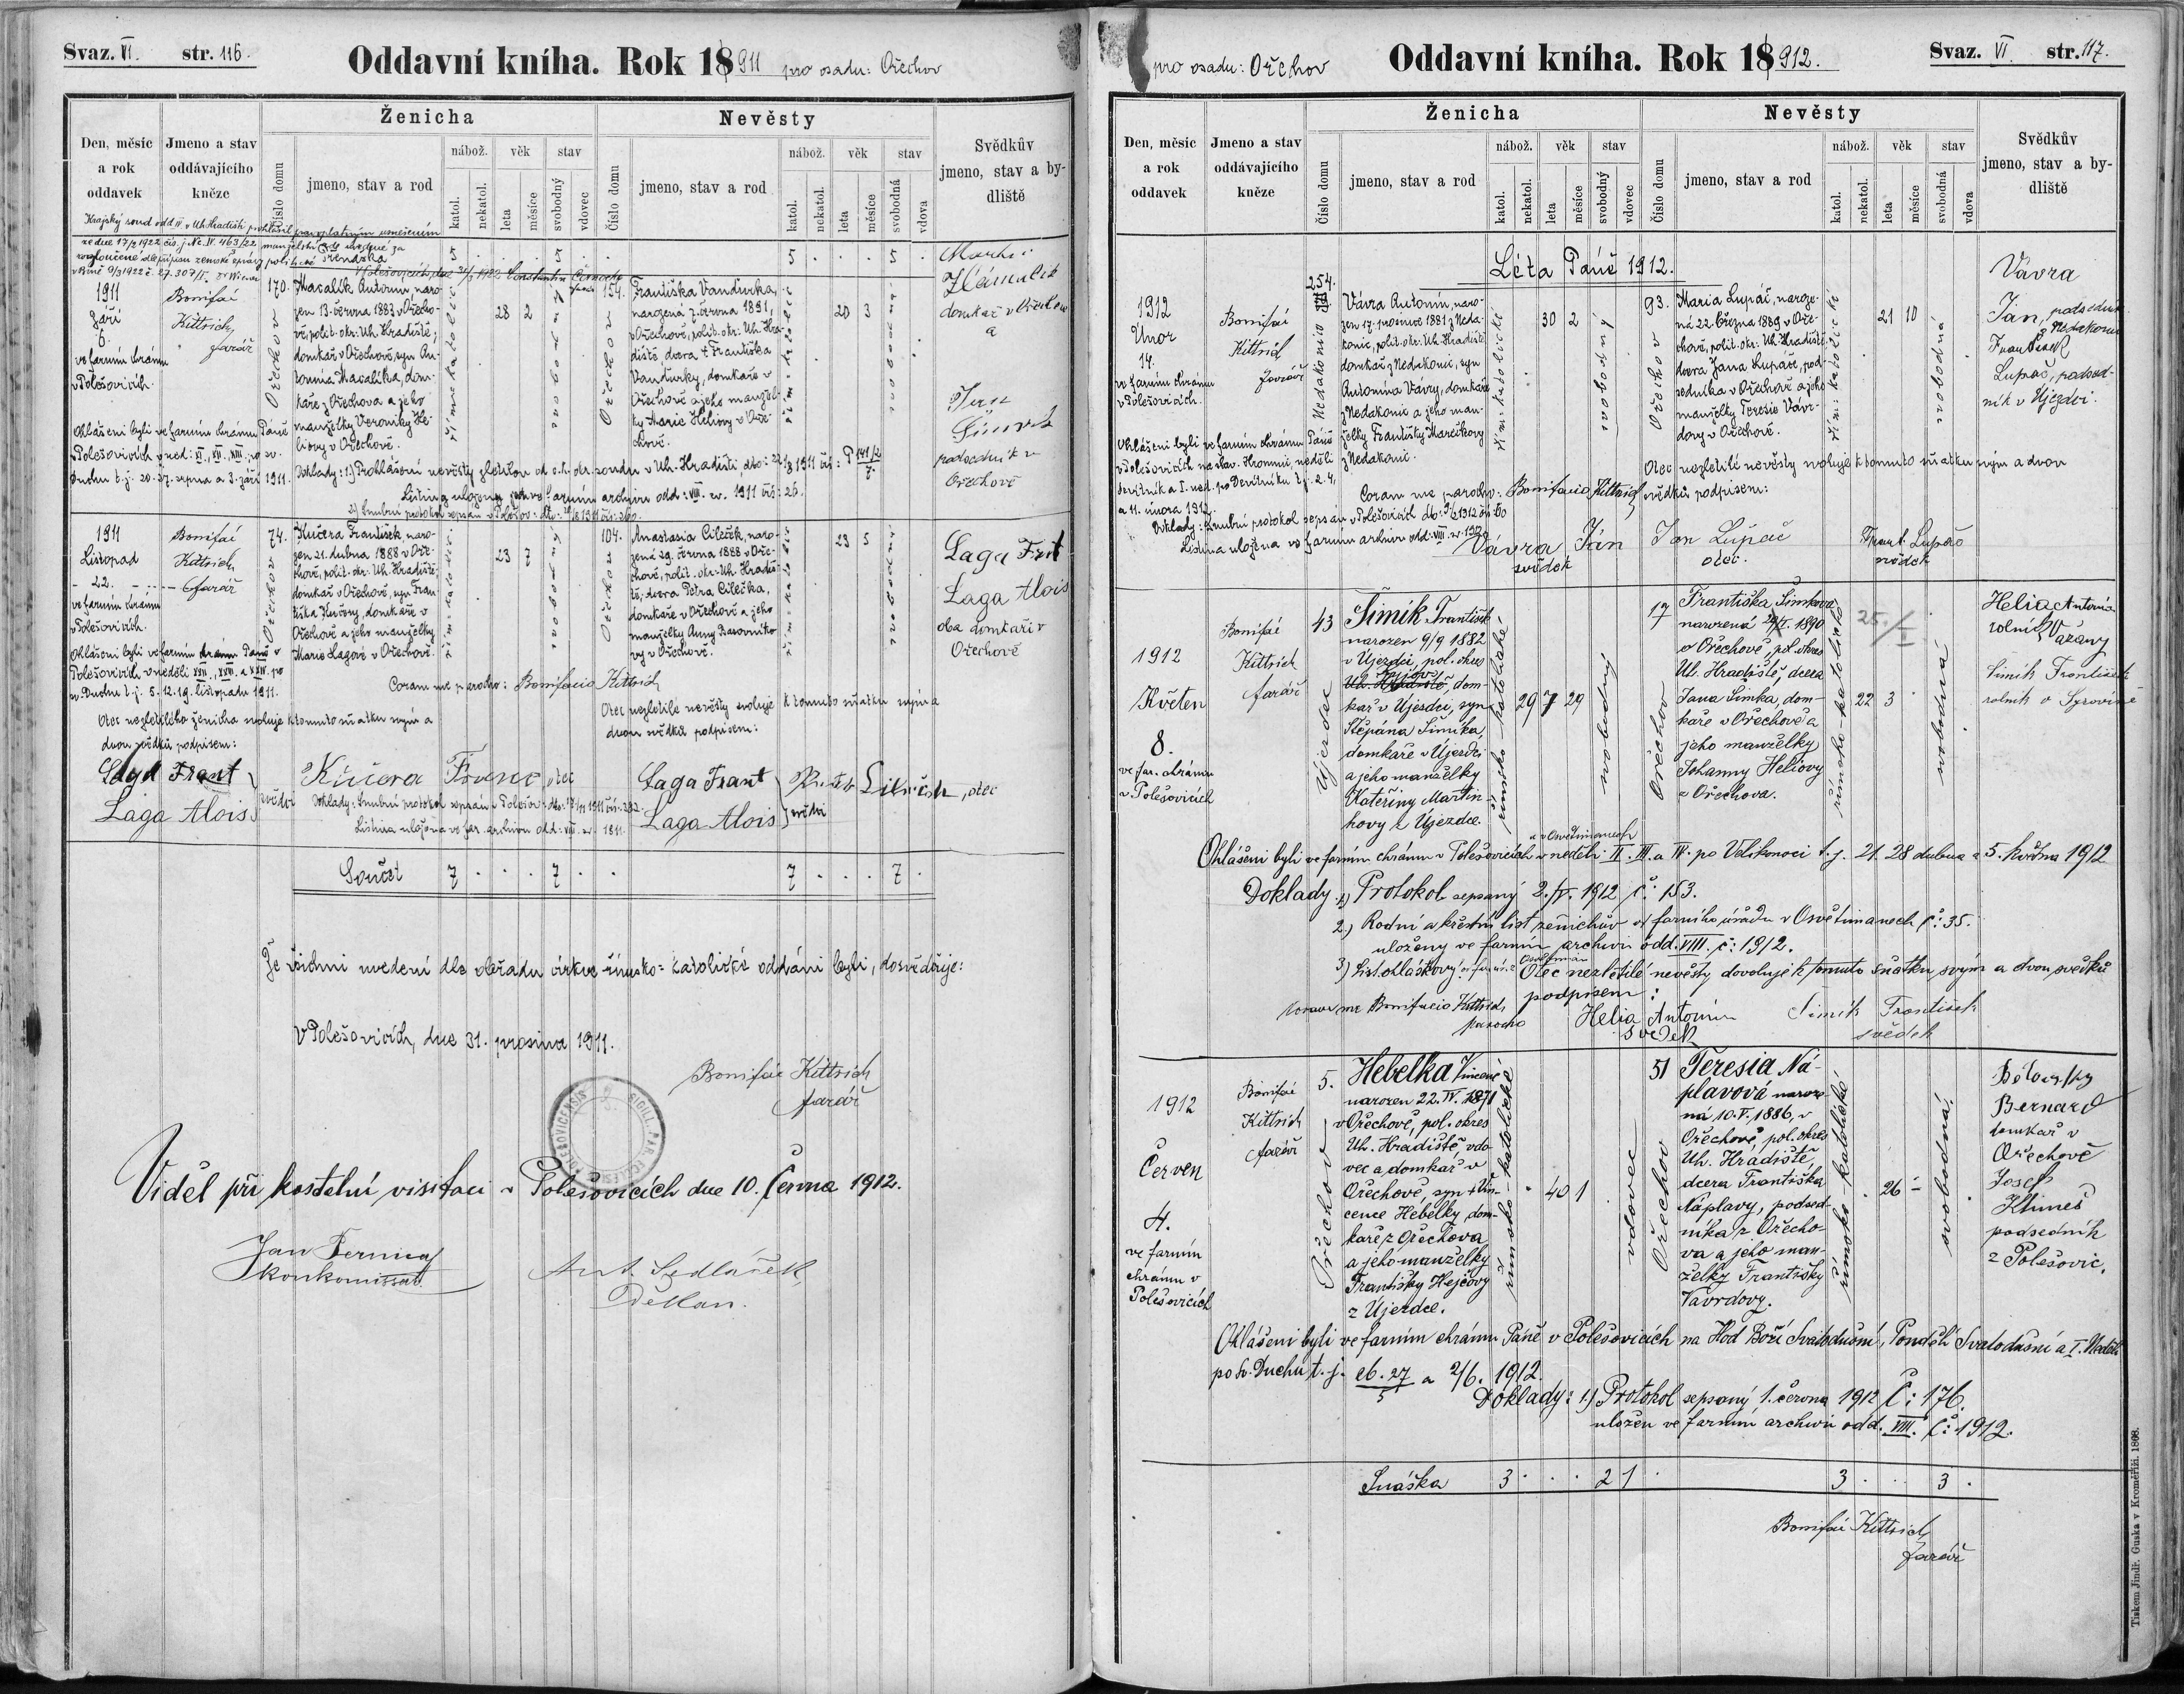 Svaz. VI. str. 116.
Oddavní kniha. Rok 1911 pro osadu: Ořechov
Den, měsíc a rok oddavek
Jmeno a stav oddávajícího kněze
Ženicha
Číslo domu
jmeno, stav a rod
nábož.
katol.
nekatol.
věk
leta
měsíce
stav
svobodný
vdovec
Nevěsty
Číslo domu
jmeno, stav a rod
nábož.
katol.
nekatol.
věk
leta
měsíce
stav
svobodná
vdova
Svědkův jmeno, stav a bydliště
Krajský soud odd. IV v Uh. Hradišti prohlásil pravoplatným usnesením
ze dne 17/2 1922 čís. j. Nc. IV. 463/22 manželství
Snáška 5 5 5 5
1911
Září
6.
ve farním chrámu
v Polešovicích.
Bonifác
Kittrich,
farář
170.
Ořechov
Macalík Antonín, naro-
zen 13. června 1883 v Ořecho-
vě, polit. okr: Uh. Hradiště;
domkař v Ořechově, syn An-
tonína Macalíka, dom-
kaře z Ořechova a jeho
manželky Veroniky He-
liovy v Ořechově.
římsko katolické
28 2
svobodný
154.
Ořechov
Františka Vandurka,
narozena 7. června 1891,
v Ořechově, polit. okr: Uh. Hra-
diště dcera † Františka
Vandurky, domkaře v
Ořechově a jeho manžel-
ky Marie Heliovy v Oře-
chově.
20 3
svobodná
Martin
Hámalík
domkař v Ořechově
a
Jan
Šimík
podsedník v
Ořechově
Ohlášeni byli ve farním chrámu Páně
v Polešovicích v ned: XI., XII., XIII., po sv.
Duchu t. j. 20. 27. srpna a 3. září 1911.
Doklady: 1.) Prohlášení nevěsty zletilou od c. k. okr. soudu v Uh. Hradišti, dto: 22/8 1911 čís: P 141/2 7.
Listina uložena ve farním archivu odd: VIII. ev. 1911 čís: 26.
1911
Listopad
22.
ve farním chrámu
v Polešovicích.
Bonifác
Kittrich,
farář
74.
Ořechov
Kučera František, naro-
zen 21. dubna 1888 v Oře-
chově, polit. okr. Uh. Hradiště;
domkař v Ořechově, syn Fran-
tiška Kučery, domkaře v
Ořechově a jeho manželky
Marie Lagové v Ořechově.
23 7
svobodný
104.
Ořechov
Anastasia Cileček, naro-
zená 29. června 1888 v Oře-
chově, polit. okr: Uh. Hradiš-
tě; dcera Petra Cilečka,
domkaře v Ořechově a jeho
manželky Anny
v Ořechově.
23 5
svobodná
Laga Frnt
Laga Alois
oba domkaři v
Ořechově
Ohlášeni byli ve farním chrámu Páně v
Polešovicích v neděli XXII., XXIII. a XXIV. po
sv. Duchu t. j. 5. 12. 19. listopadu 1911.
Coram me parocho: Bonifacio Kittrich
Otec nezletilého ženicha svoluje k tomuto sňatku svým a
dvou svědků podpisem:
Otec nezletilé nevěsty svoluje k tomuto sňatku svým a
dvou svědků podpisem:
Laga Frant
Laga Alois
svědci
Kučera Franc, otec
Doklady: Snubní protokol sepsán v Polešov.
Listina uložena ve far. archivu odd: VIII.
Laga Frant
Laga Alois
svědci
otec
Součet 7 7 7 7
Že všichni uvedení dle obřadu církve římsko-katolické oddáni byli, dosvědčuje:
V Polešovicích, dne 31. prosince 1911.
Bonifác Kittrich
farář
Viděl při kostelní visitaci v Polešovicích dne 10. června 1912.
Ant. Sedláček,
děkan.
pro osadu: Ořechov
Oddavní kniha. Rok 1912.
Svaz. VI. str. 117.
Den, měsíc a rok oddavek
Jmeno a stav oddávajícího kněze
Ženicha
Číslo domu
jmeno, stav a rod
nábož.
katol.
nekatol.
věk
leta
měsíce
stav
svobodný
vdovec
Nevěsty
Číslo domu
jmeno, stav a rod
nábož.
katol.
nekatol.
věk
leta
měsíce
stav
svobodná
vdova
Svědkův jmeno, stav a bydliště
Léta Páně 1912.
1912
Únor
14.
ve farním chrámu
v Polešovicích.
Bonifác
Kittrich
farář
254.
Nedakonic
Vávra Antonín, naro-
zen 17. prosince 1881 z Neda-
konic, polit. okr: Uh. Hradiště,
domkař z Nedakonic, syn
Antonína Vávry, domkaře
z Nedakonic a jeho man-
želky Františky Marečkovy
z Nedakonic.
řím: katolické
30 2
svobodný
93.
Ořechov
Maria Lupáč, naroze-
ná 22. března 1889 v Oře-
chově, polit. okr: Uh. Hradiště,
dcera Jana Lupáče, pod-
sedníka v Ořechově a jeho
manželky Teresie Vávr-
dovy v Ořechově.
řím: katolické
21 10
svobodná
Vávra
Jan, podsedník
z Nedakonic
František
Lupač, podsed-
ník v Újezdci.
Ohlášeni byli ve farním chrámu Páně
v Polešovicích na slav. Hromnic, neděli
Devítník a I. ned. po Devítníku t. j. 2. 4.
a 11. února 1912.
Otec nezletilé nevěsty svoluje k tomuto sňatku svým a dvou
svědků podpisem:
Coram me parocho: Bonifacio Kittrich
Doklady: Snubní protokol sepsán v Polešovicích
Listina uložena ve farním archivu odd: VIII.
Vávra Ján
svědek
Jan Lupač
otec.
Frant. Lupač
svědek
1912
Květen
8.
ve far. chrámu
v Polešovicích
Bonifác
Kittrich
farář
43
Újezdec
Šimík František
narozen 9/9 1882
v Újezdci, pol. okres
Kyjov, dom-
kař v Újezdci, syn
Štěpána Šimíka,
domkaře v Újezdci
a jeho manželky
Kateřiny Martin-
kovy z Újezdce.
římsko-katolické
29 7 29
svobodný
17
Ořechov
Františka Šimkova
narozená 1890
v Ořechově, pol. okres
Uh. Hradiště, dcera
Jana Šimka, dom-
kaře v Ořechově a
jeho manželky
Johanny Heliovy
z Ořechova.
římsko-katolické
22 3
svobodná
Helia Antonín
rolník Vážany
Šimík František
rolník v Syrovíně
Ohlášeni byli ve farním chrámu v Polešovicích a v Osvětimanech v neděli II. III. a IV. po Velikonoci t. j. 21. 28 dubna a 5. května 1912
Doklady. 1) Protokol sepsaný 2./V. 1912 č: 153.
2.) Rodní a křestní list ženichův od farního úřadu v Osvětimanech č: 35.
uloženy ve farním archivu odd. VIII. č: 1912.
3) List ohláškový
Otec nezletilé nevěsty dovoluje k tomuto sňatku svým a dvou svědků
podpisem:
Coram me Bonifacio Kittrich,
parocho
Helia Antonín
Svedek
Šimík František
svědek
1912
Červen
4.
ve farním
chrámu v
Polešovicích
Bonifác
Kittrich
farář
5.
Ořechov
Hebelka Vincenc
narozen 22. IV. 1871
v Ořechově, pol. okres
Uh. Hradiště, vdo-
vec a domkař v
Ořechově, syn † Vin-
cence Hebelky, dom-
kaře z Ořechova
a jeho manželky
Františky Hejčovy
z Újezdce.
římsko-katolické
40 1
vdovec
51
Ořechov
Teresia Ná-
plavová naroze-
ná 10. V. 1886, v
Ořechově, pol. okres
Uh. Hradiště,
dcera Františka
Náplavy, podsed-
níka z Ořecho-
va a jeho man-
želky Františky
Vavrdovy.
římsko-katolické
26 -
svobodná
Bělovský
Bernard
domkař v
Ořechově
Josef
Klimeš
podsedník
z Polešovic.
Ohlášeni byli ve farním chrámu Páně v Polešovicích na Hod Boží Svatodušní, Pondělí Svatodušní a I. Neděli
po Sv. Duchu t. j. 26. 27/5 a 2/6. 1912.
Doklady: 1.) Protokol sepsaný 1. června 1912 Č: 176.
uložen ve farním archivu odd. VIII. č: 1912.
Snáška 3 2 1 3 3
Bonifác Kittrich,
farář
Tiskem Jindř. Guska v Kroměříži. 1868.